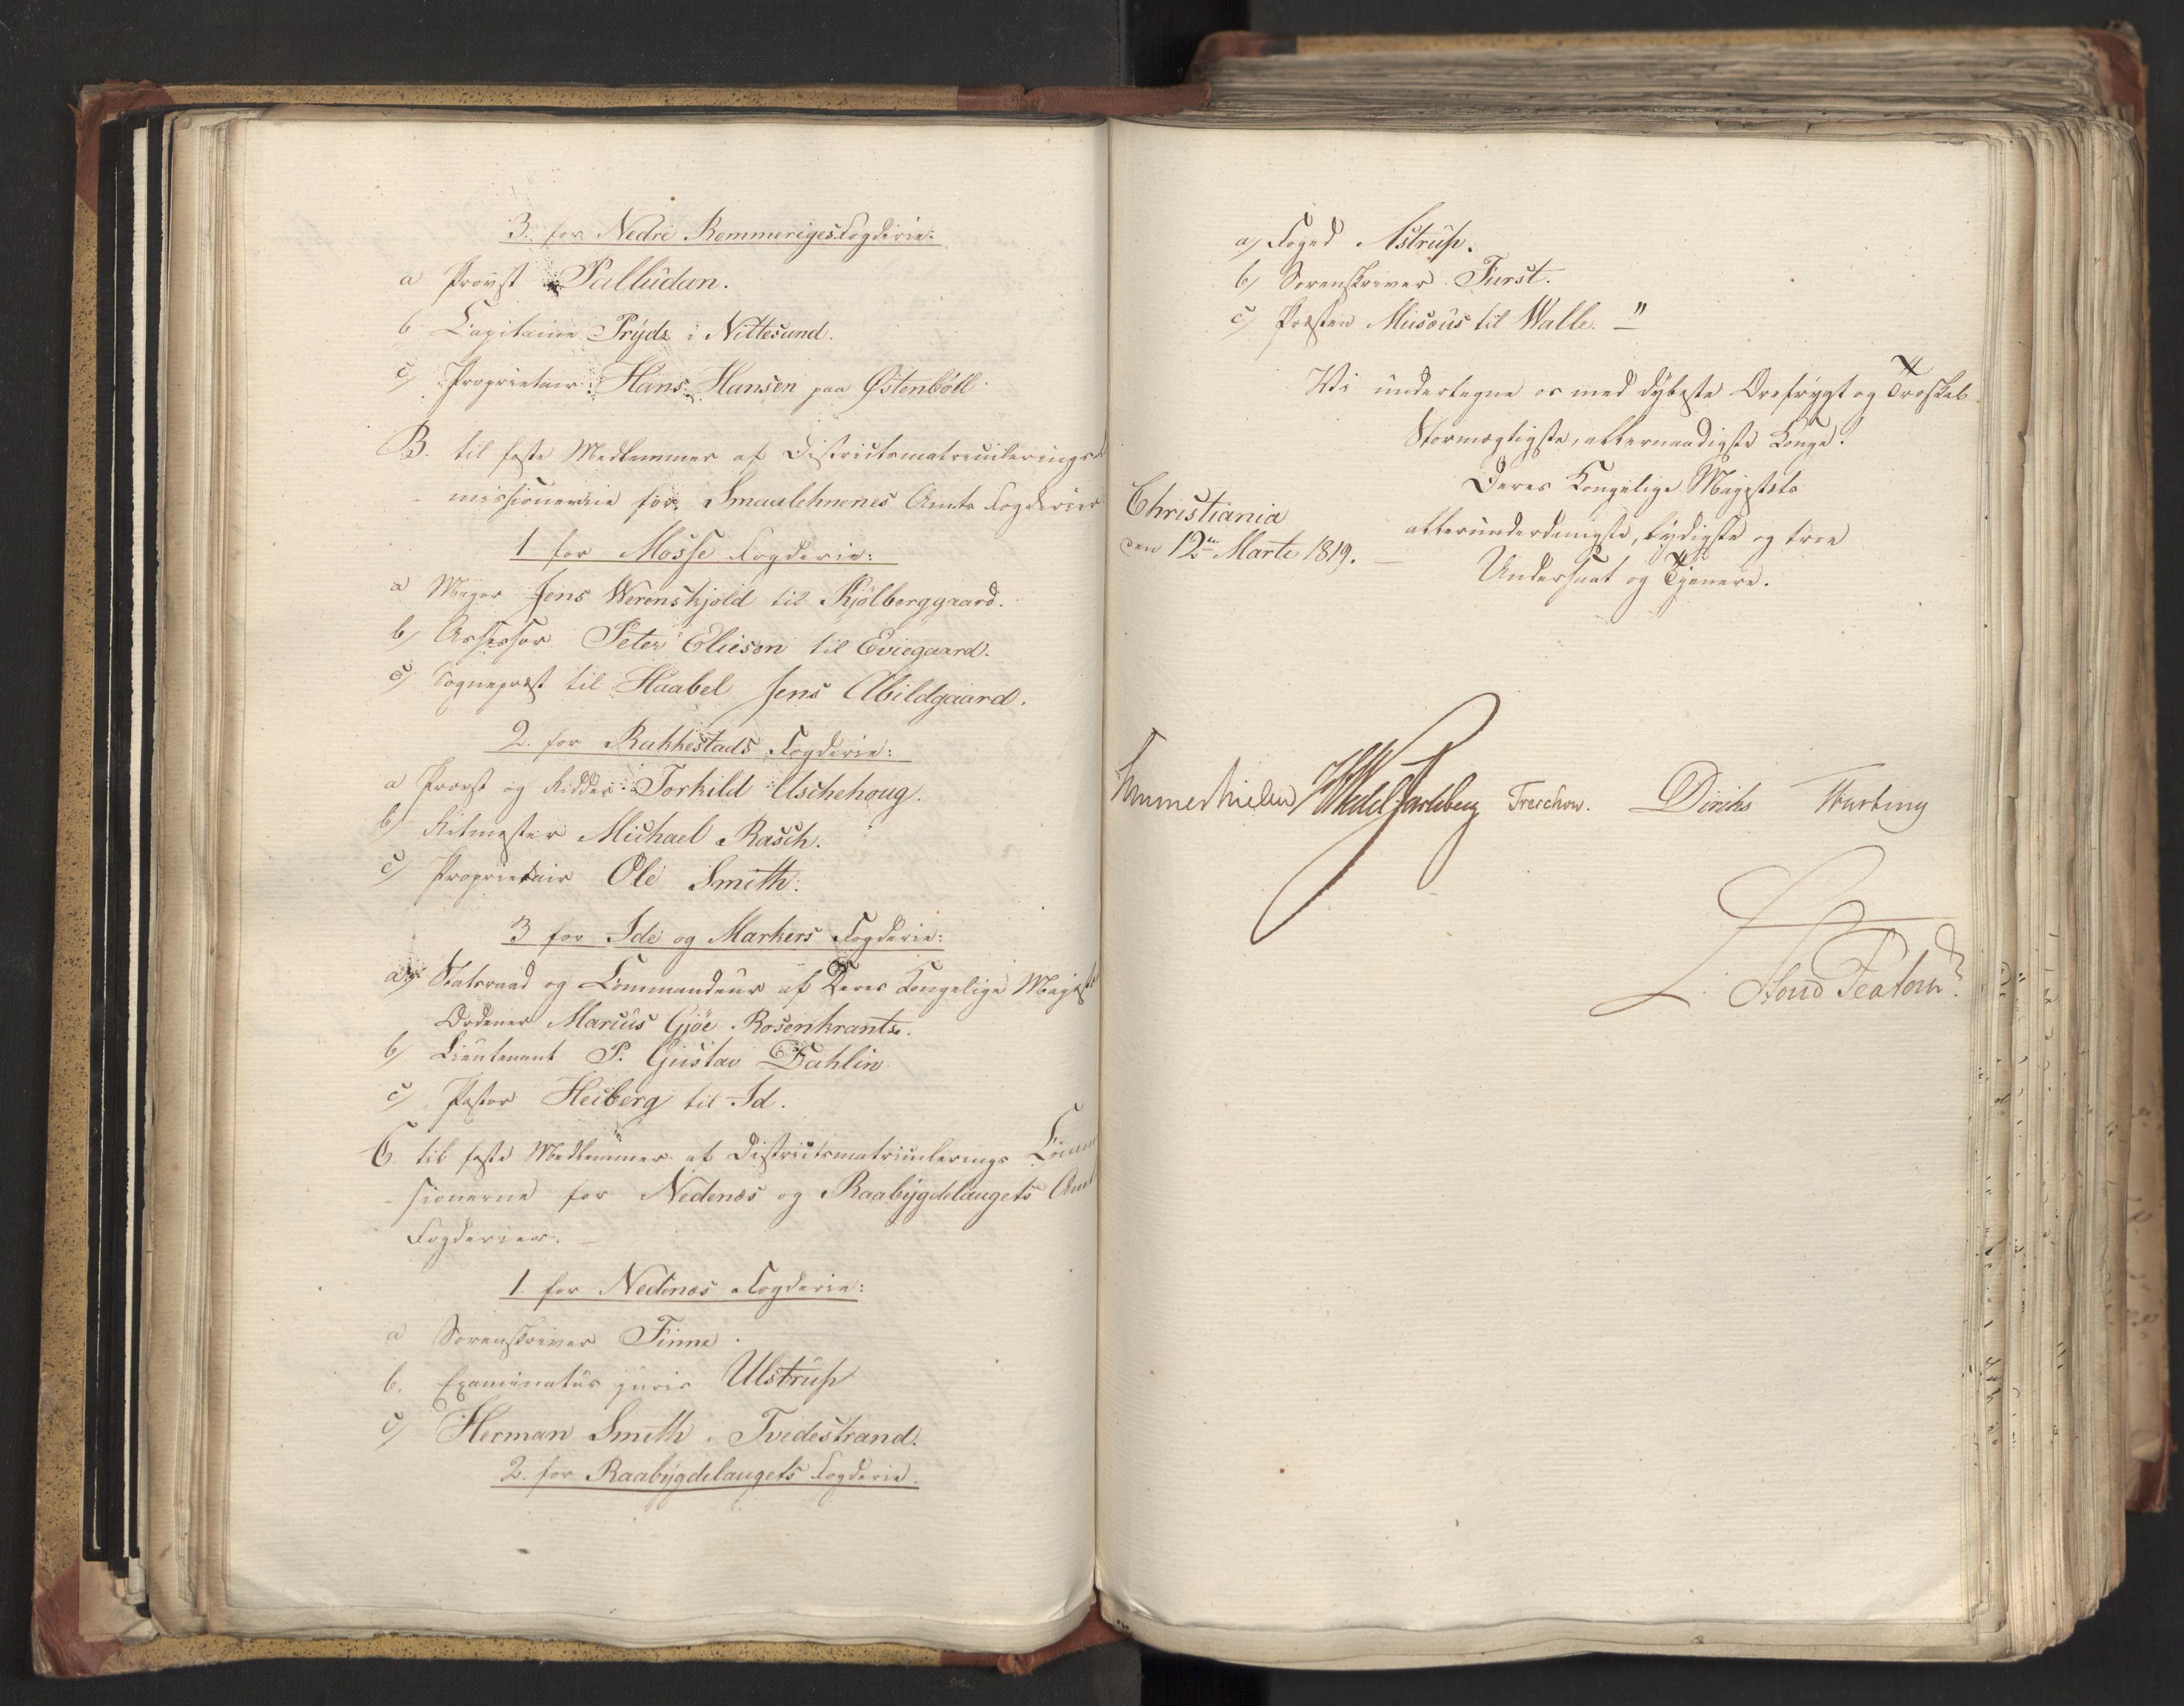 3. for Nedre Rommeriges Fogderie:
a Provst Palludan.
b Capitaine Prydz i Nittesund.
c) Proprietair Hans Hansen paa Østenböll.
B. til faste Medlemmer af Districtsmatriculerings
missionerne for Smaalehnenes Amts Fogderier
1 for Mosse Fogderie:
a Major Jens Werenskjold til Kjölberggaard.
b) Assessor Peter Elieson til Eviegaard.
c) Sognepræst til Haabel Jens Abildgaard.
2. for Rakkestads Fogderie:
a Provst og Ridder Torkild Aschehoug.
b) Ritmester Michael Rasch.
c) Proprietair Ole Smith.
3 for Ide og Markers Fogderie:
a) Statsraad og Commandeur af Deres Kongelige Majest
Ordener Marcus Gjöe Rosenkrantz.
b) Lieutenant P. Gustav Dahlin
c) Pastor Heiberg til Id.
C. til faste Medlemmer af Districtsmatriculerings Comm
sionerne for Nedenæs og Raabygdelaugets Amt
Fogderier.
1. for Nedenæs Fogderie:
a Sorenskriver Finne.
b. Examinatus juris Ulstrup
c) Herman Smith i Tvedestrand.
2. for Raabygdelaugets Fogderie.
a) Foged Astrup.
b) Sorenskriver Furst.
c) Præsten Musæus til Walle. "
Vi undertegne os med dybeste Ærefrygt og Troskab
Stormægtigste, allernaadigste Konge!
Deres Kongelige Majestæts
Christiania
den 12te Marti 1819.
allerunderdanigste, lydigste og troe
Undersaat og Tjenere.
Sommerhielm HWedel Jarlsberg Treschow. Diriks Fasting